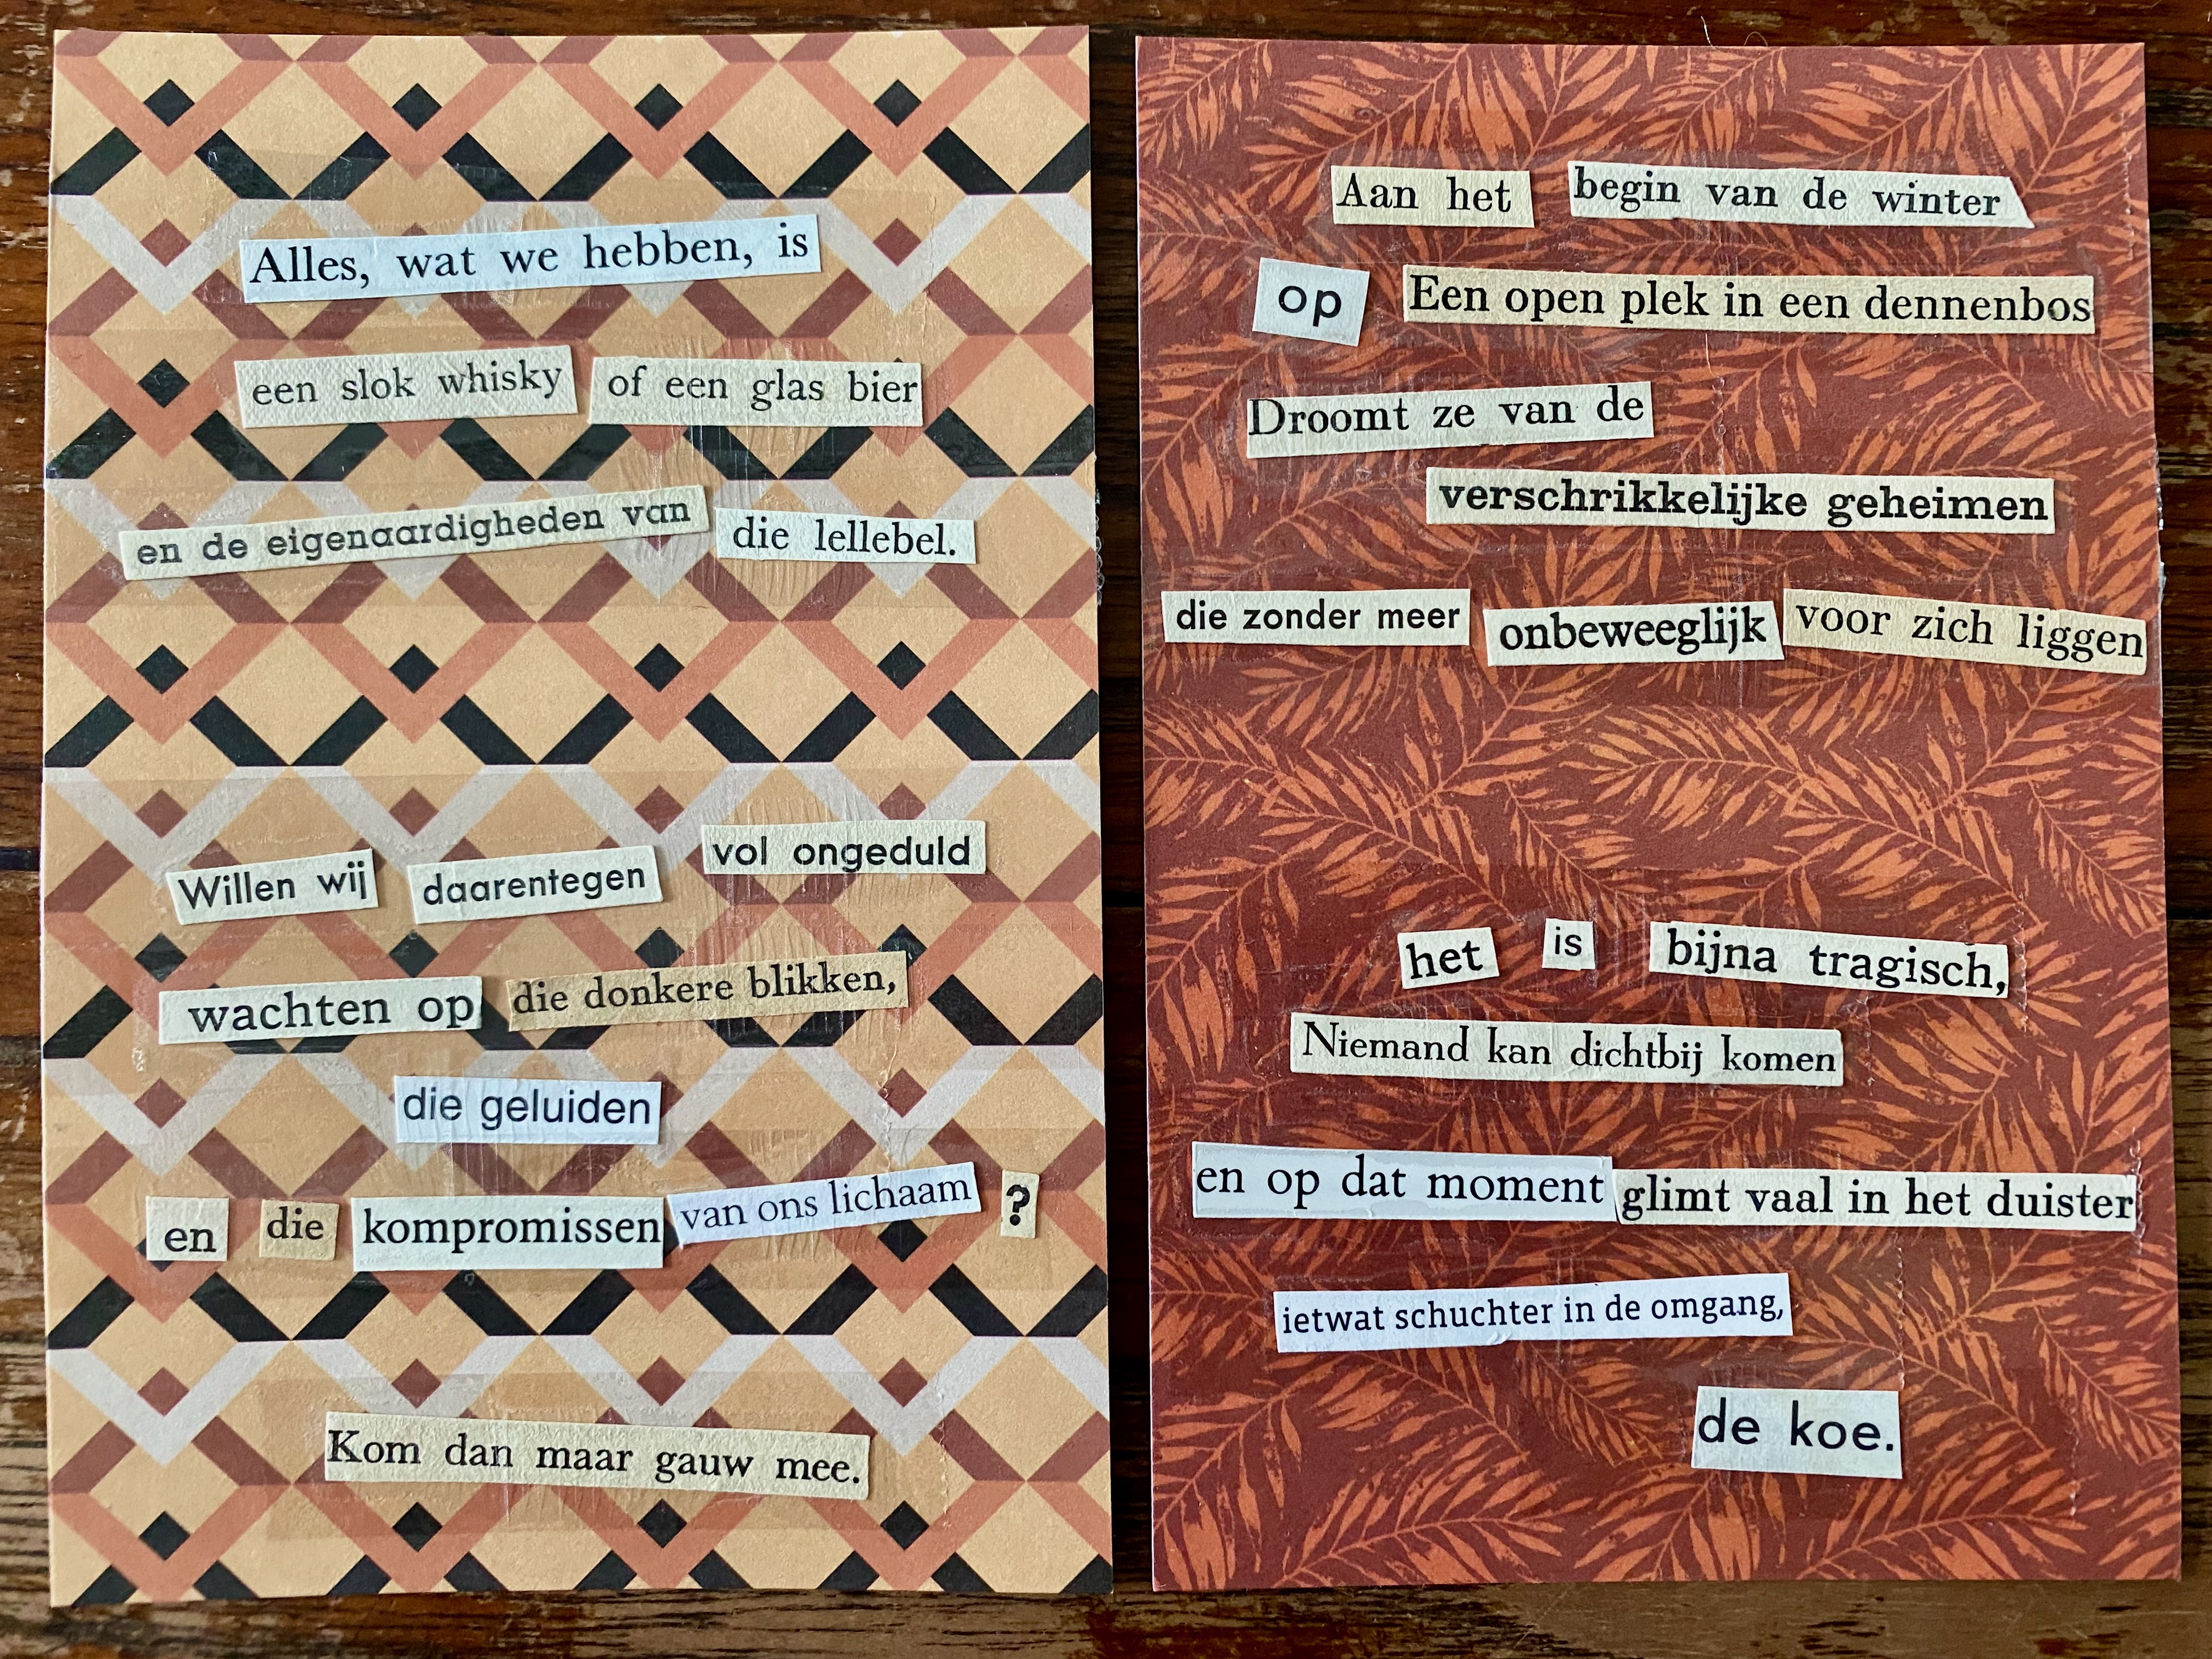 Alles, wat we hebben, is
een slok whisky of een glas bier
en de eigenaardigheden van die lellebel.
Willen wij daarentegen vol ongeduld
wachten op die donkere blikken,
die geluiden
en die kompromissen van ons lichaam ?
Kom dan maar gauw mee.
Aan het begin van de winter
op Een open plek in een dennenbos
Droomt ze van de
verschrikkelijke geheimen
die zonder meer onbeweeglijk voor zich liggen
het is bijna tragisch,
Niemand kan dichtbij komen
en op dat moment glimt vaal in het duister
ietwat schuchter in de omgang,
de koe.